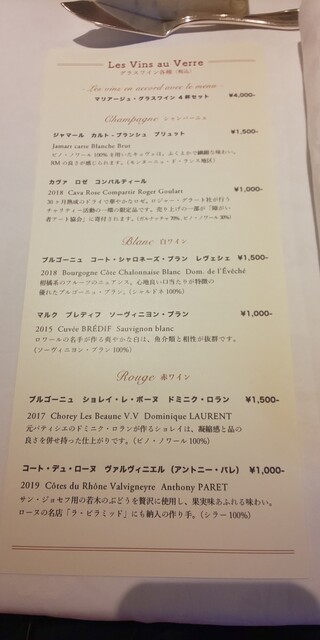 Les Vins au Verre
グラスワイン各種 (税込)
Les vins en accord avec le menu
マリアージュ・グラスワイン 4杯セット ¥4,000-
Champagne シャンパーニュ
ジャマール カルト・ブランシュ ブリュット ¥1,500-
Jamart carte Blanche Brut
ピノ・ノワール 100%を用いたキュヴェは、ふくよかで繊細な味わい。
RMの良さが感じられます。(モンターニュ・ド・ランス地区)
カヴァ ロゼ コンパルティール ¥1,000-
2018 Cava Rose Compartir Roger Goulart
30ヶ月熟成のドライで華やかなロゼ。ロジャー・グラート社が行う
チャリティー活動の一環の限定品です。売り上げの一部が「障がい
者アート協会」に寄付されます。(ガルナッチャ 70%、ピノ・ノワール 30%)
Blanc 白ワイン
ブルゴーニュ コート・シャロネーズ・ブラン レヴェシェ ¥1,500-
2018 Bourgogne Côte Chalonnaise Blanc Dom. de l'Évêché
柑橘系のフルーツのニュアンス。心地良い口当たりが特徴の
優れたブルゴーニュ・ブラン。(シャルドネ 100%)
マルク ブレディフ ソーヴィニヨン・ブラン ¥1,000-
2015 Cuvée BRÉDIF Sauvignon blanc
ロワールの名手が作る爽やかな白は、魚介類と相性が抜群です。
(ソーヴィニヨン・ブラン 100%)
Rouge 赤ワイン
ブルゴーニュ ショレイ・レ・ボーヌ ドミニク・ロラン ¥1,500-
2017 Chorey Les Beaune V.V Dominique LAURENT
元パティシエのドミニク・ロランが作るショレイは、凝縮感と品の
良さを併せ持った仕上がりです。(ピノ・ノワール 100%)
コート・デュ・ローヌ ヴァルヴィニエル (アントニー・パレ) ¥1,000-
2019 Côtes du Rhône Valvigneyre Anthony PARET
サン・ジョセフ用の若木のぶどうを贅沢に使用し、果実味あふれる味わい。
ローヌの名店「ラ・ピラミッド」にも納入の作り手。(シラー 100%)